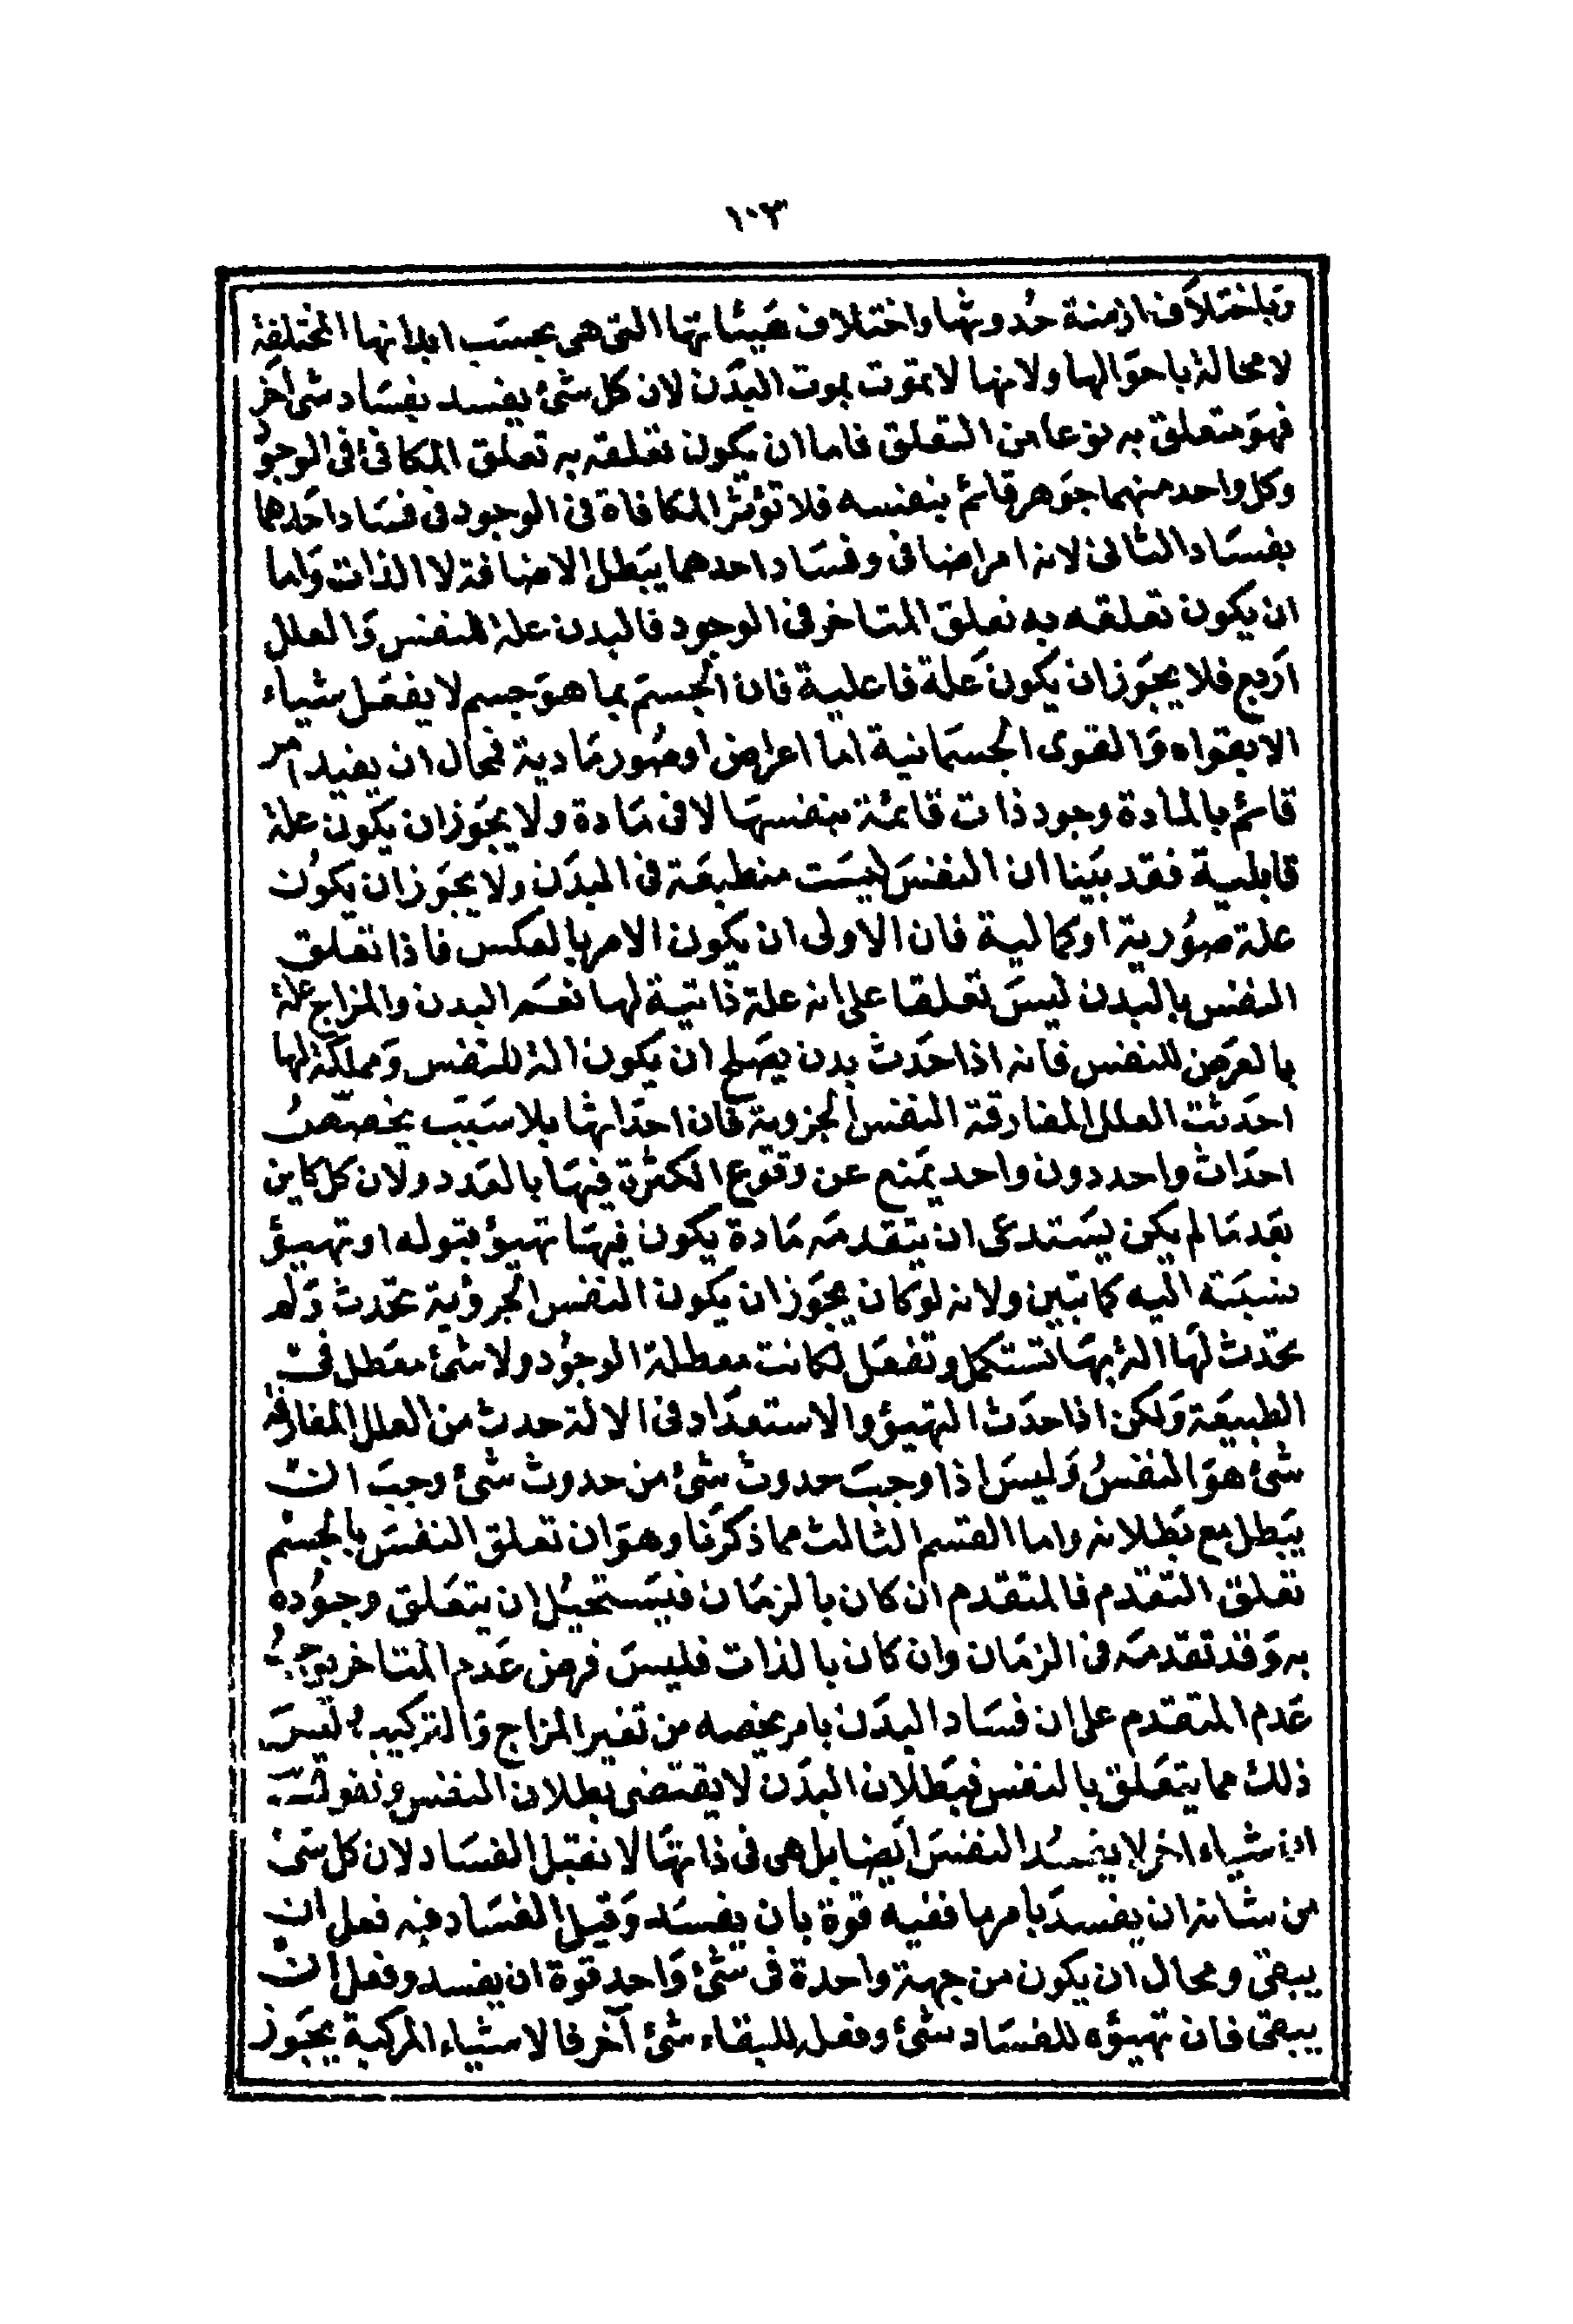 ١٠٣
وباختلاف ازمنة حدوثها واختلاف هيئاتها التى هى بحسب ابدانها المختلفة
لا محالة باحوالها ولانها لا تموت بموت البدن لان كل شئ يفسد بفساد شى اخر
فهو متعلق به نوعا من التعلق فاما ان يكون تعلقه به تعلق المكافئ فى الوجود
وكل واحد منهما جوهر قائم بنفسه فلا تؤثر المكافاة فى الوجود فى فساد احدهما
بفساد الثانى لانه امر اضافى وفساد احدهما يبطل الاضافة لا الذات واما
ان يكون تعلقه به تعلق المتاخر فى الوجود فالبدن علة للنفس والعلل
اربع فلا يجوز ان يكون علة فاعلية فان الجسم بما هو جسم لا يفعل شياء
الا بقواه والقوى الجسمانية اما اعراض او صور مادية فمحال ان يفيد امر
قائم بالمادة وجود ذات قائمة بنفسها لا فى مادة ولا يجوز ان يكون علة
قابلية فقد بينا ان النفس ليست منطبعة فى البدن ولا يجوز ان يكون
علة صورية او كمالية فان الاولى ان يكون الامر بالعكس فاذا تعلق
النفس بالبدن ليس تعلقا على انه علة ذاتية لها نعم البدن والمزاج علة
بالعرض للنفس فانه اذا حدث بدن يصلح ان يكون الة للنفس ومملكة لها
احدثت العلل المفارقة النفس الجزوية فان احداثها بلا سبب يخصص
احداث واحد دون واحد يمنع عن وقوع الكثرة فيها بالعدد ولان كل كاين
بعد ما لم يكن يستدعى ان يتقدمه مادة يكون فيها تهيؤ قبوله او تهييؤ
نسبته اليه كما تبين ولانه لو كان يجوز ان يكون النفس الجزؤية تحدث ولم
تحدث لها الة بها تستكمل وتفعل لكانت معطلة الوجود ولا شئ معطل فى
الطبيعة ولكن اذا حدث التهيؤ والاستعداد فى الالة حدث من العلل المفارقة
شئ هو النفس وليس اذا وجب حدوث شئ من حدوث شئ وجب ان
يبطل مع بطلانه واما القسم الثالث مما ذكرنا وهو ان تعلق النفس بالجسم
تعلق التقدم فالمتقدم ان كان بالزمان فيستحيل ان يتعلق وجوده
به وقد تقدمه فى الزمان وان كان بالذات فليس فرض عدم المتاخر يوجب
عدم المتقدم على ان فساد البدن بامر يخصه من تغير المزاج والتركيب وليس
ذلك مما يتعلق بالنفس فبطلان البدن لا يقتضى بطلان النفس ونقول
ان شياء اخر لا يفسد النفس ايضا بل هى فى ذاتها لا تقبل الفساد لان كل شئ
من شانه ان يفسد بامر ما ففيه قوة بان يفسد وقبل الفساد فيه فعل ان
يبقى ومحال ان يكون من جهة واحدة فى شئ واحد قوة ان يفسد وفعل ان
يبقى فان تهيؤه للفساد شئ وفعله للبقاء شئ آخر فالاشياء المركبة يجوز